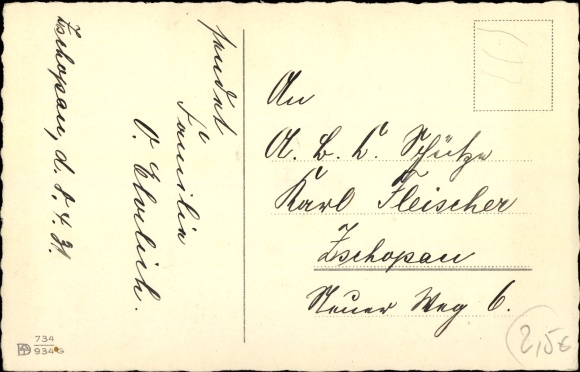 Zschopau, d. 5. 4. 31.
sendet
Familie
O. Ehrlich.
An
A. B. C. Schütze
Karl Fleischer
Zschopau
Neuer Weg 6.
734
934
2,5€